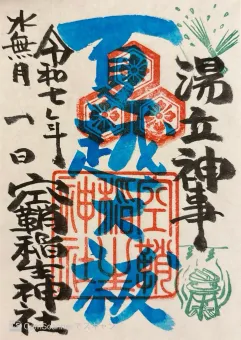 湯立神事
夏越祓
空鞘
稲生
神社
令和七年
水無月一日
空鞘稲生神社